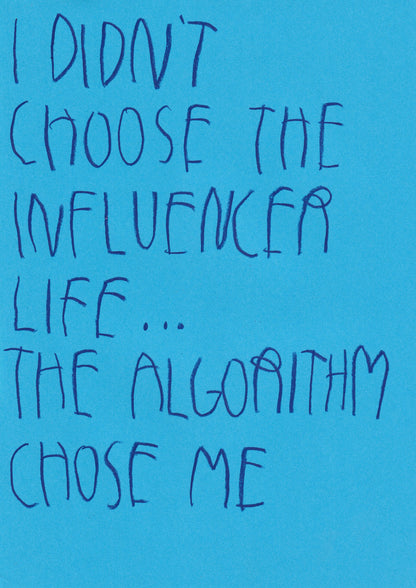 I DIDN'T
CHOOSE THE
INFLUENCER
LIFE...
THE ALGORITHM
CHOSE ME